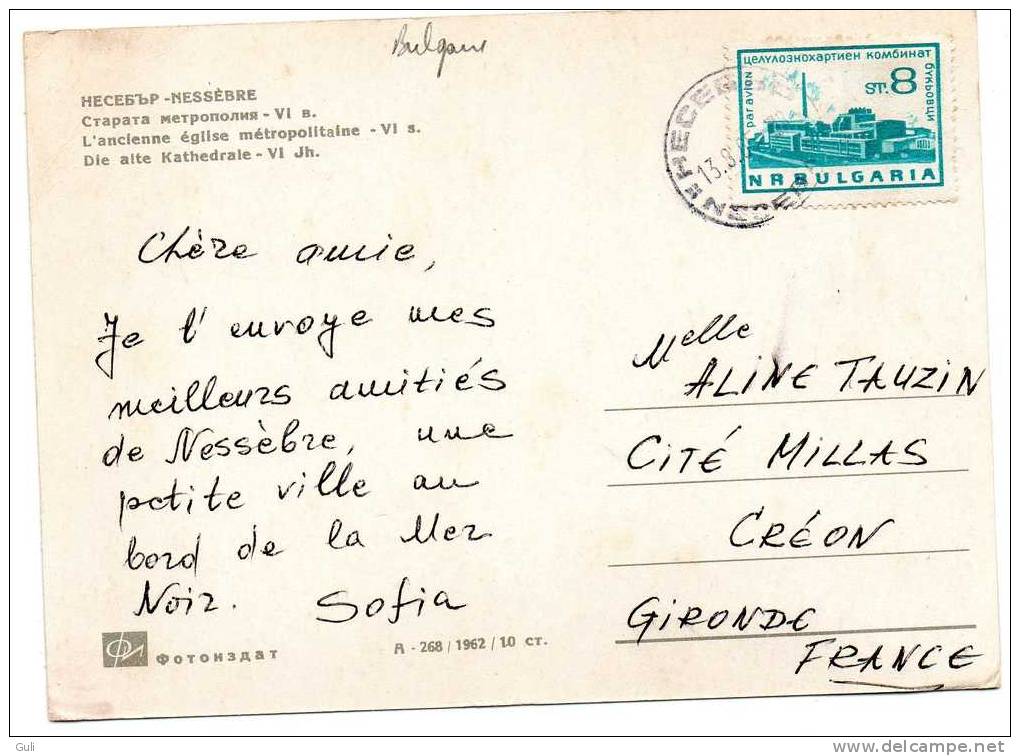 Bulgarie
НЕСЕБЪР -NESSÈBRE
Старата метрополия - VI в.
L'ancienne église métropolitaine - VI s.
Die alte Kathedrale - VI Jh.
целулознохартиен комбинат
букьовци
par avion
ST. 8
N R BULGARIA
НЕСЕБ
13.8.
NECEB
Chère amie,
Je t'envoye mes
meilleurs amitiés
de Nessèbre, une
petite ville au
bord de la Mer
Noir. Sofia
Melle
ALINE TAUZIN
CITÉ MILLAS
CRÉON
GIRONDE
FRANCE
Фотоиздат
А - 268 / 1962 / 10 ст.
Guli
delcampe.net